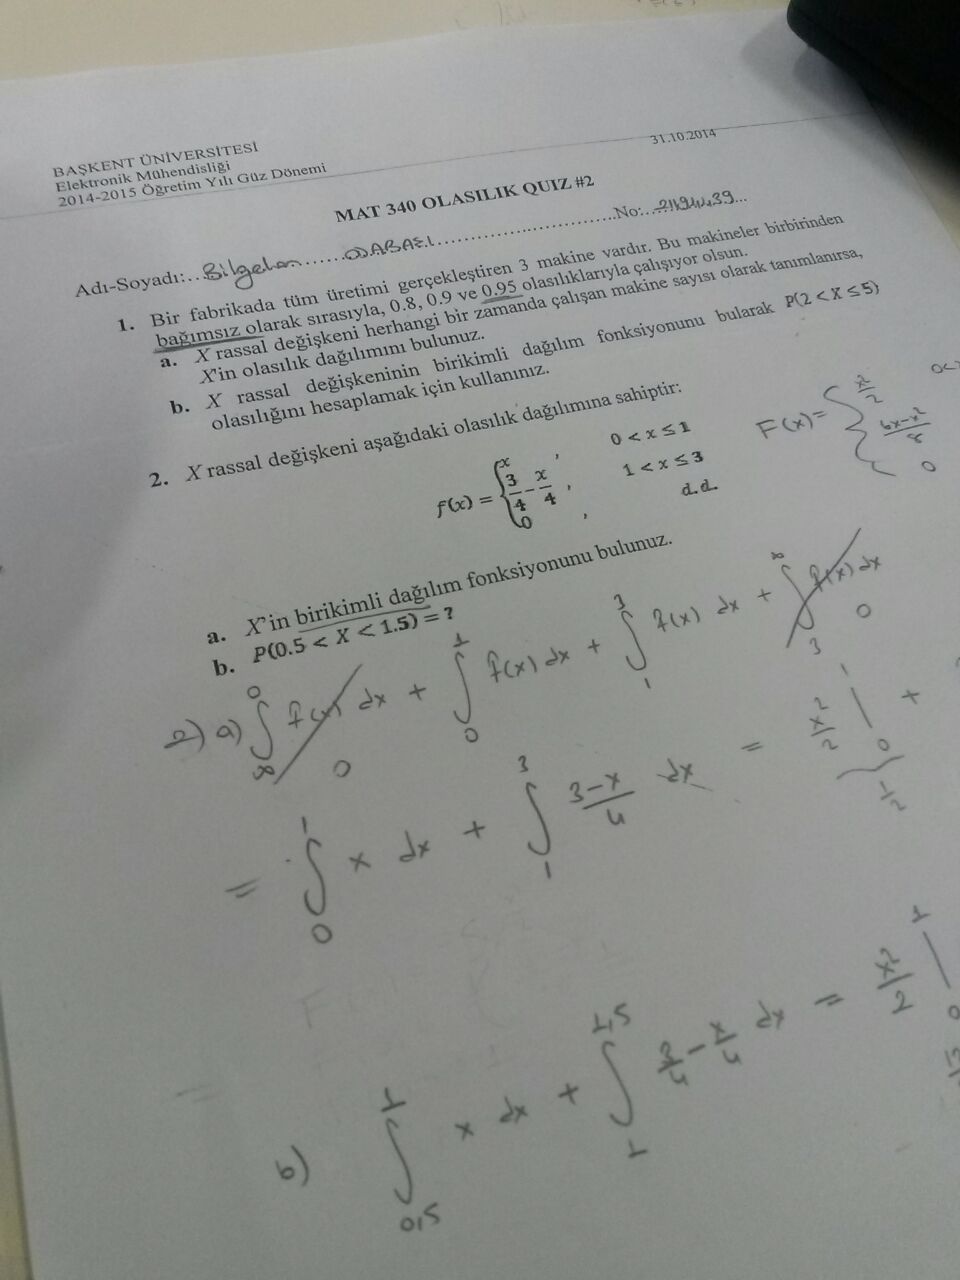 31.10.2014
BAŞKENT ÜNİVERSİTESİ
Elektronik Mühendisliği
2014-2015 Öğretim Yılı Güz Dönemi
MAT 340 OLASILIK QUIZ #2
Adı-Soyadı:...Bilgehan......ODABAŞI.............................No:....
1. Bir fabrikada tüm üretimi gerçekleştiren 3 makine vardır. Bu makineler birbirinden
bağımsız olarak sırasıyla, 0.8, 0.9 ve 0.95 olasılıklarıyla çalışıyor olsun.
a. X rassal değişkeni herhangi bir zamanda çalışan makine sayısı olarak tanımlanırsa,
X'in olasılık dağılımını bulunuz.
b. X rassal değişkeninin birikimli dağılım fonksiyonunu bularak P(2 < X ≤ 5)
olasılığını hesaplamak için kullanınız.
2. X rassal değişkeni aşağıdaki olasılık dağılımına sahiptir:
f(x) = { x , 0 < x ≤ 1
3/4 − x/4 , 1 < x ≤ 3
0 , d.d.
F(x) = { x²/2 0<
6x-x²/8
0
a. X'in birikimli dağılım fonksiyonunu bulunuz.
b. P(0.5 < X < 1.5) = ?
2) a) ∫ 0 ∞ f(x) dx + ∫ 1 0 f(x) dx + ∫ 3 1 f(x) dx + ∫ ∞ 3 f(x) dx
0 0
= ∫ 1 0 x dx + ∫ 3 1 3-x/4 dx = x²/2 | 1 0 +
1/2
b) ∫ 1 0,5 x dx + ∫ 1,5 1 3/4 - x/4 dx = x²/2 | 1 0